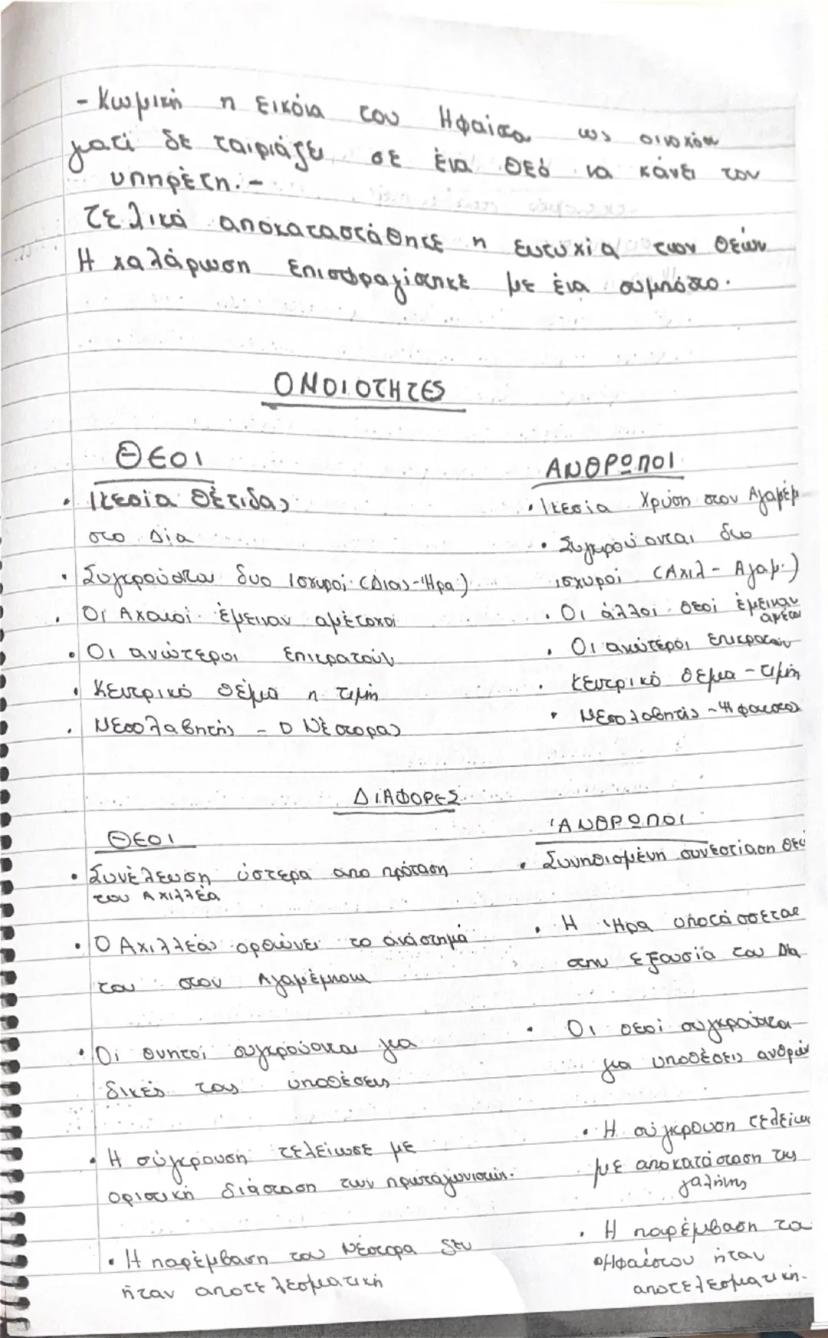 - Κωμική η εικόνα του Ηφαίστου ως οινοχόου
γιατί δε ταιριάζει σε ένα θεό να κάνει τον
υπηρέτη.-
Τελικά αποκαταστάθηκε η ευτυχία των θεών
Η χαλάρωση επισφραγίστηκε με ένα συμπόσιο.
ΟΜΟΙΟΤΗΤΕΣ
ΘΕΟΙ
• Ικεσία Θέτιδας
στο Δία
• Συγκρούονται δυο ισχυροί (Δίας-Ήρα)
• Οι Αχαιοί έμειναν αμέτοχοι
• Οι ανώτεροι επικρατούν
• Κεντρικό θέμα η τιμή
• Μεσολαβητής - ο Νέστορας
ΑΝΘΡΩΠΟΙ
• Ικεσία Χρύση στον Αγαμέμ
• Συγκρούονται δυο
ισχυροί (Αχιλ - Αγαμ.)
• Οι άλλοι θεοί έμειναν
αμέτο
• Οι ανώτεροι επικρατούν
• Κεντρικό θέμα - τιμή
• Μεσολαβητής - Ήφαιστος
ΔΙΑΦΟΡΕΣ
ΘΕΟΙ
• Συνέλευση ύστερα απο πρόταση
του Αχιλλέα
• Ο Αχιλλέας ορθώνει το ανάστημά
του στον Αγαμέμνονα
• Οι θνητοί συγκρούονται για
δικές τους υποθέσεις
• Η σύγκρουση τελείωσε με
οριστική διάσταση των πρωταγωνιστών.
• Η παρέμβαση του Νέστορα δεν
ήταν αποτελεσματική
ΑΝΘΡΩΠΟΙ
• Συνηθισμένη συνεστίαση θεώ
• Η Ήρα υποτάσσεται
στην εξουσία του Δία
• Οι θεοί συγκρούονται
για υποθέσεις ανθρώ
• Η σύγκρουση τελείωσ
με αποκατάσταση της
γαλήνης
• Η παρέμβαση το
Ηφαίστου ήταν
αποτελεσματική.